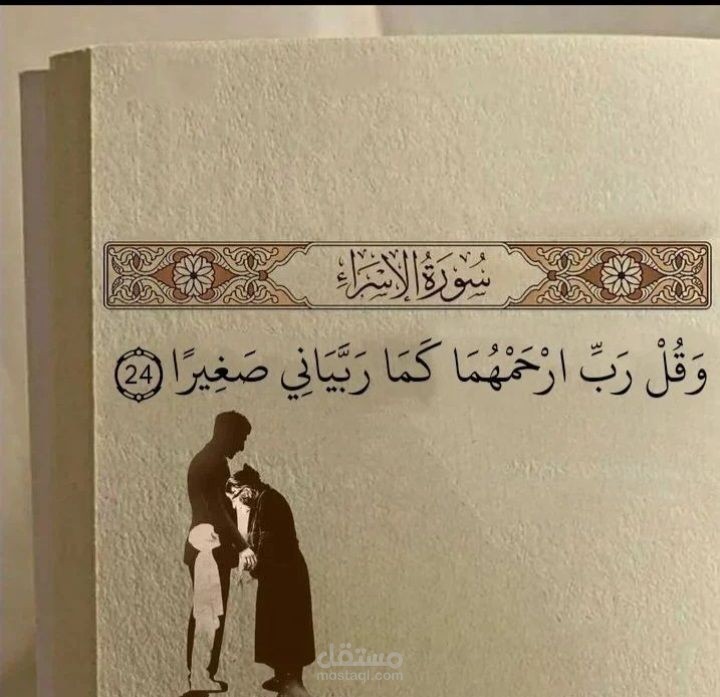 سُورَةُ الإِسْرَاءِ
وَقُلْ رَبِّ ارْحَمْهُمَا كَمَا رَبَّيَانِي صَغِيرًا 24
مستقل
mostaql.com